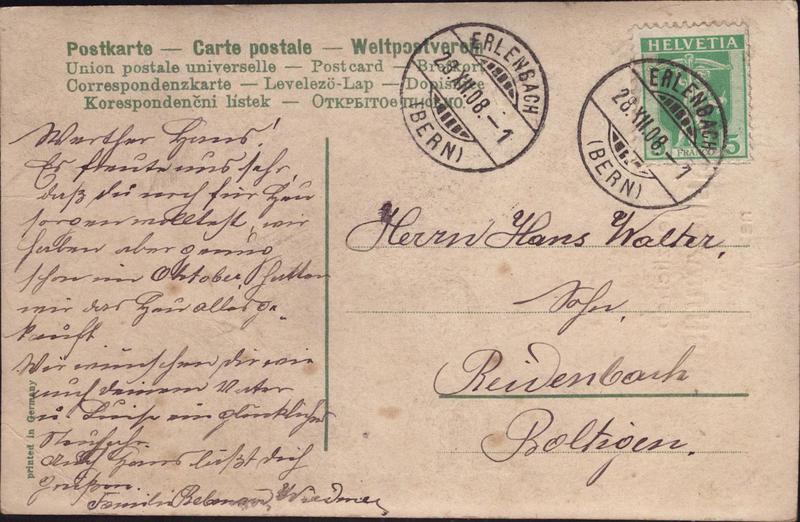 Postkarte — Carte postale — Weltpostverein
Union postale universelle — Postcard — Brefkort
Correspondenzkarte — Levelező-Lap — Dopisnice
Korespondenčni listek — Открытое письмо.
ERLENBACH
28.XII.08.–1
(BERN)
ERLENBACH
28.XII.08.–1
(BERN)
HELVETIA
FRANCO
5
Werther Hans!
Es freute uns sehr,
daß du noch für Heu
sorgen wolltest, wir
haben aber genug
schon im Oktober, hatten
wir das Heu alles ge-
kauft
Wir wünschen dir wie
auch deinem Vater
u. Luise ein glückliches
Neujahr.
Auch Hans läßt dich
grüßen.
Familie
Herrn Hans Walter,
Sohn,
Reidenbach
Boltigen.
printed in Germany